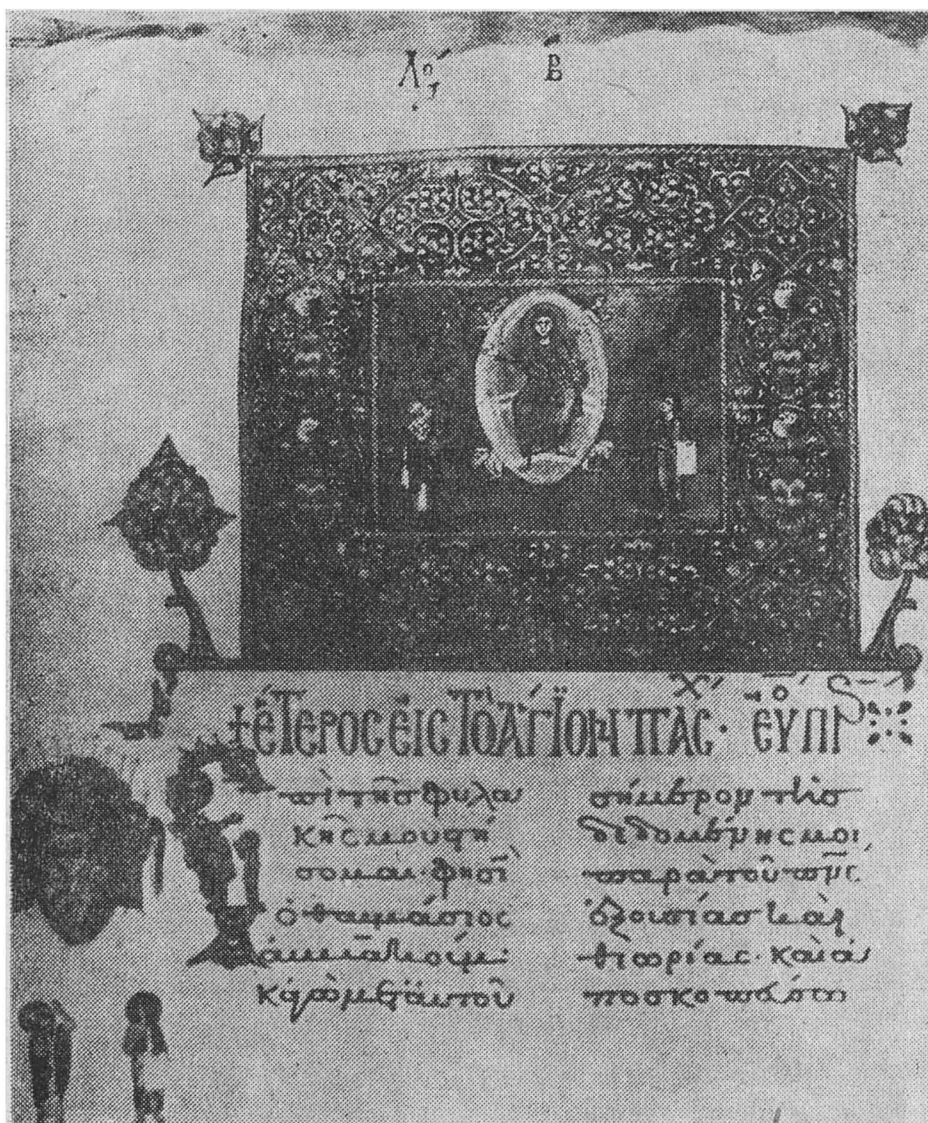 Λό Β
+ ἕτερος εἰς τὸ ἅγϊον πάσχ·
πὶ τῆς φυλα
κῆς μου στή
σομαι· φησὶ
ὁ θαυμάσιος
ἀμβακούμ·
κἀγὼ μετ αὐτοῦ
σήμερον τῆς
δεδομένης μοι
παρὰ τοῦ πνς
ἐξουσίας καὶ
θεωρίας· καὶ ἀ